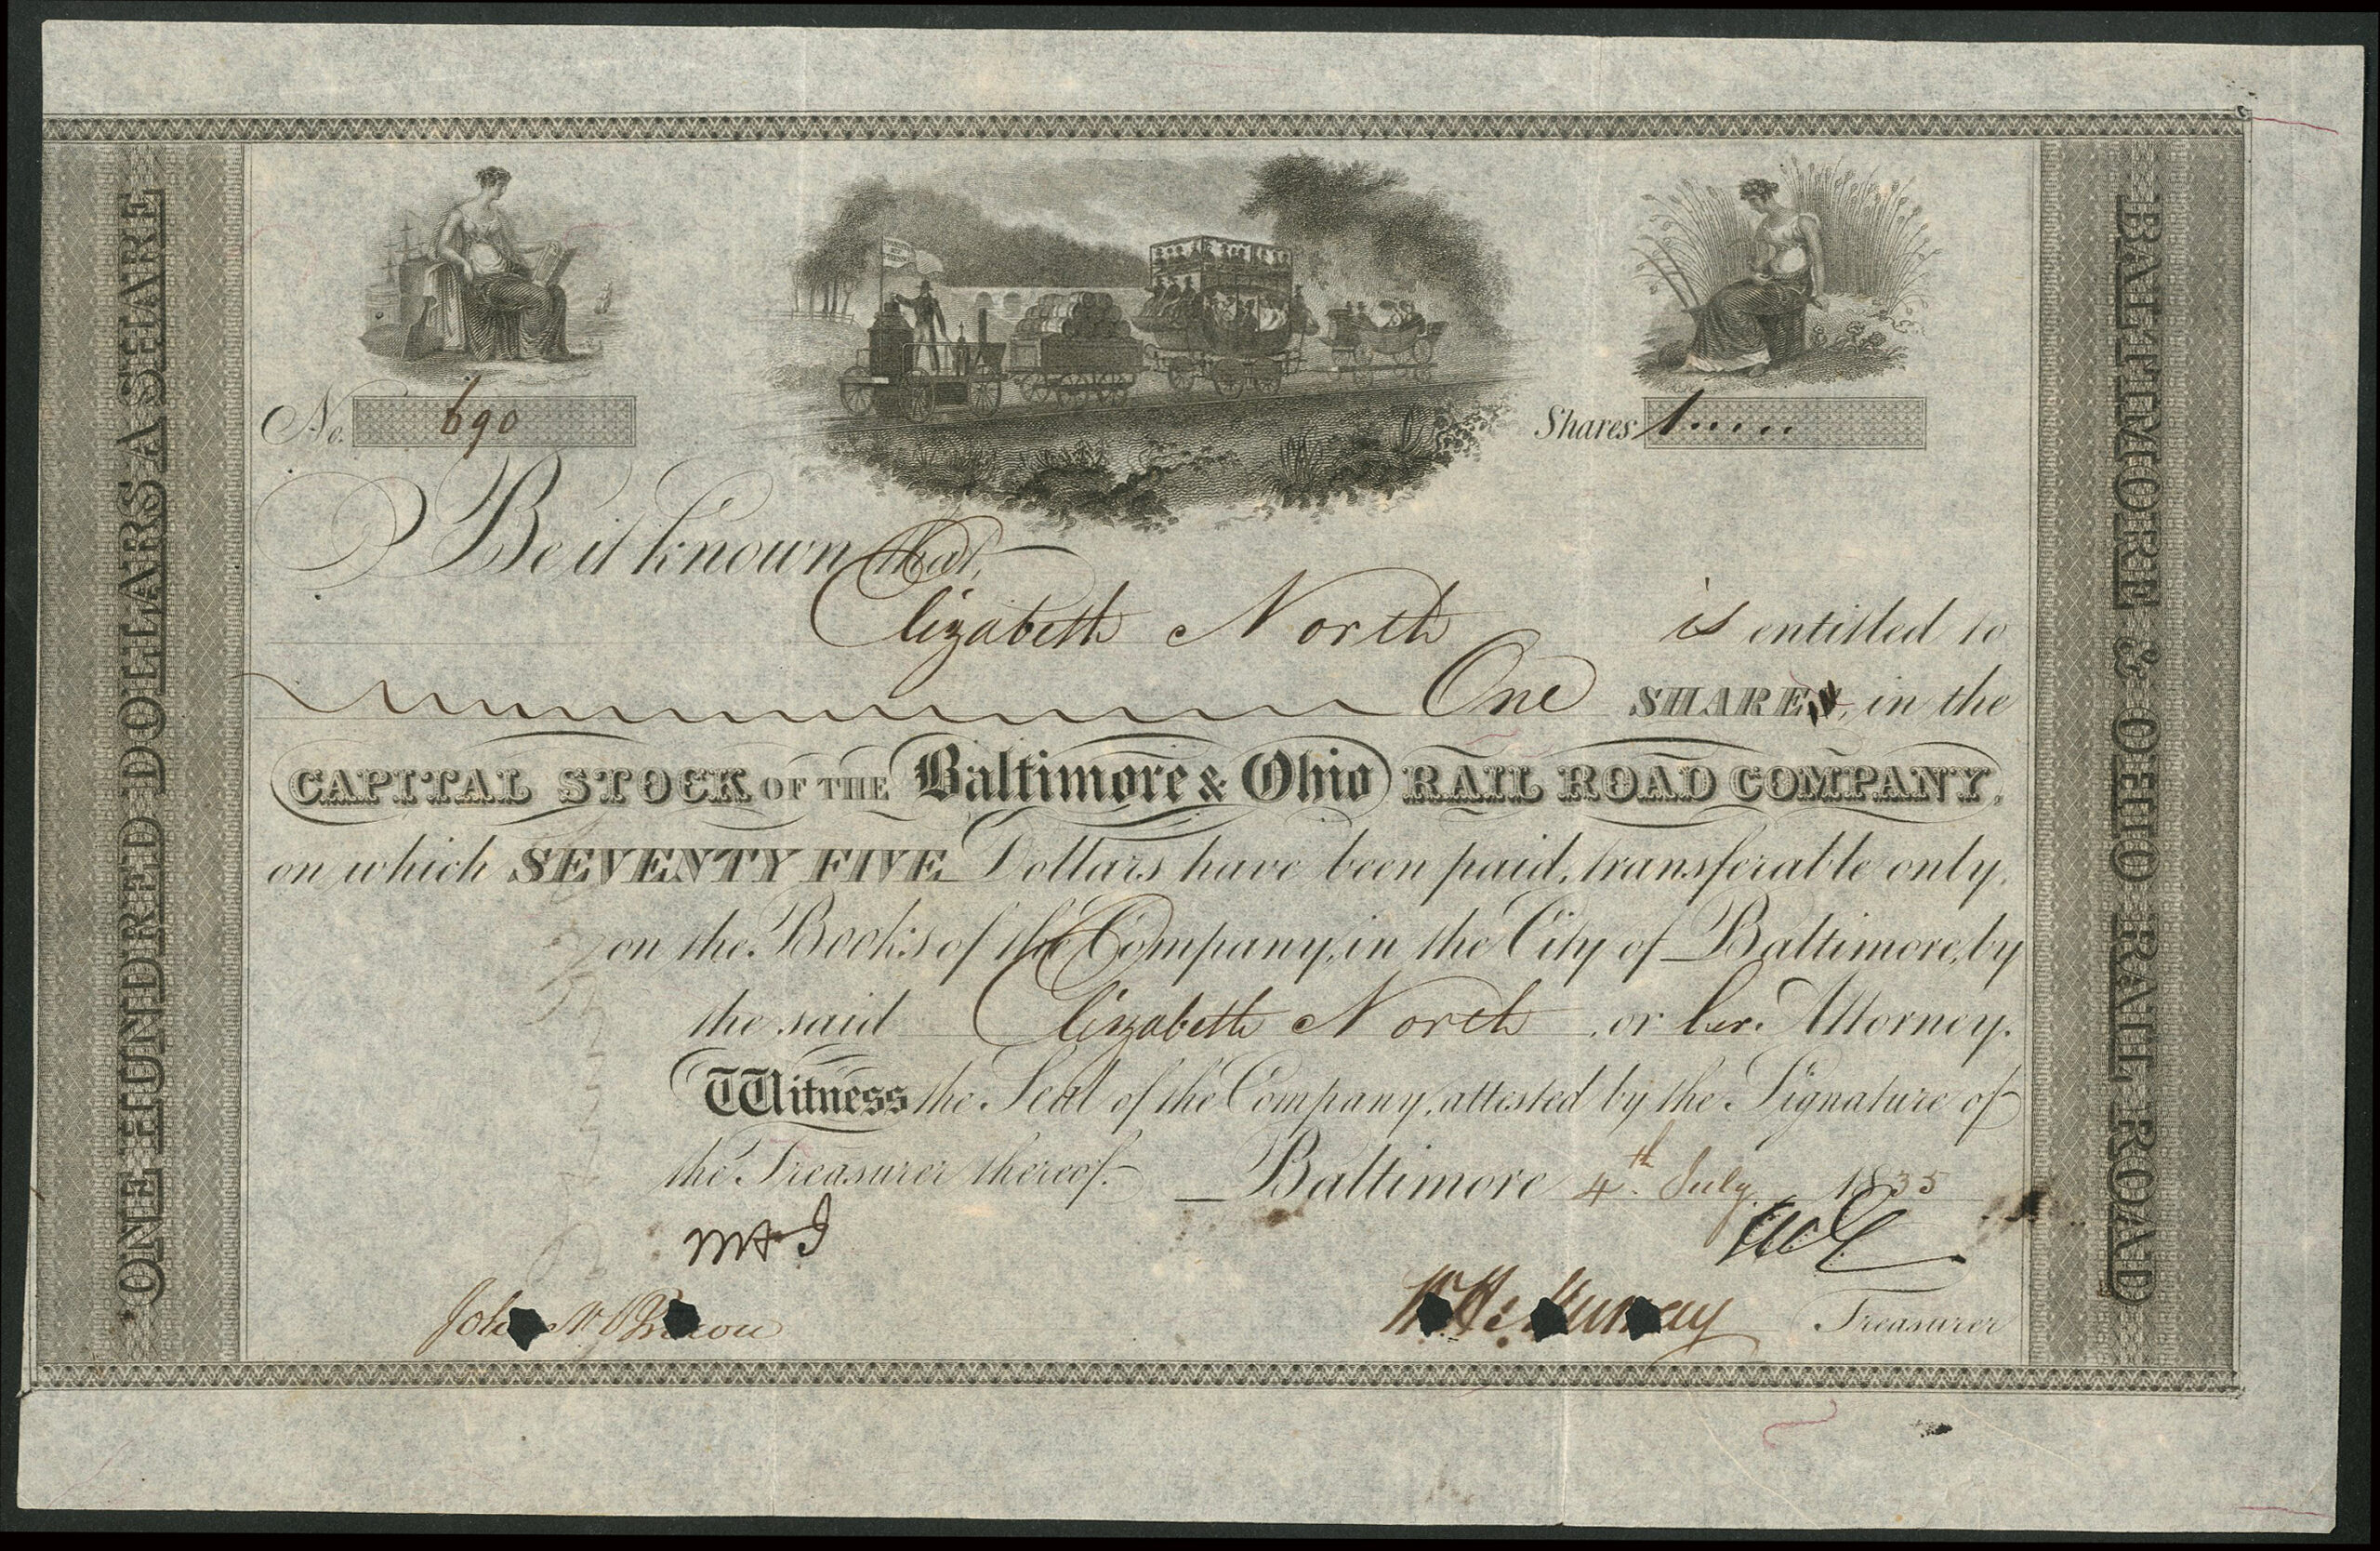 ONE HUNDRED DOLLARS A SHARE
No. 690
Shares 1
Be it known that,
Elizabeth North is entitled to
One SHARE, in the
CAPITAL STOCK OF THE Baltimore & Ohio RAIL ROAD COMPANY,
on which SEVENTY FIVE Dollars have been paid, transferable only,
on the Books of the Company, in the City of Baltimore, by
the said Elizabeth North, or her Attorney.
Witness the Seal of the Company, attested by the Signature of
the Treasurer thereof.
Baltimore 4th July 1835
John
Treasurer
BALTIMORE & OHIO RAIL ROAD